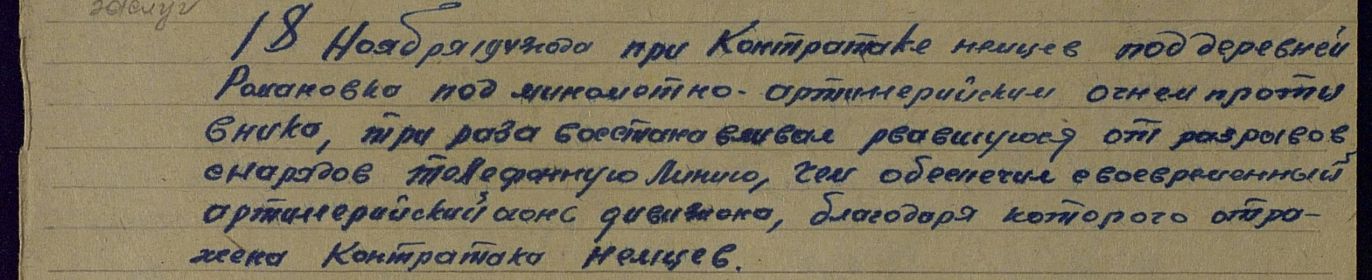 заслуг
18 Ноября 1943 года при Контратаке немцев под деревней
Романовка под миномотно-артилерийским огнем проти
вника, три раза восстанавливал рвавшуюся от разрывов
снарядов телефонную Линию, чем обеспечил своевременный
артилерийский огонь дивизиона, благодаря которого отра-
жена Контратака Немцев.